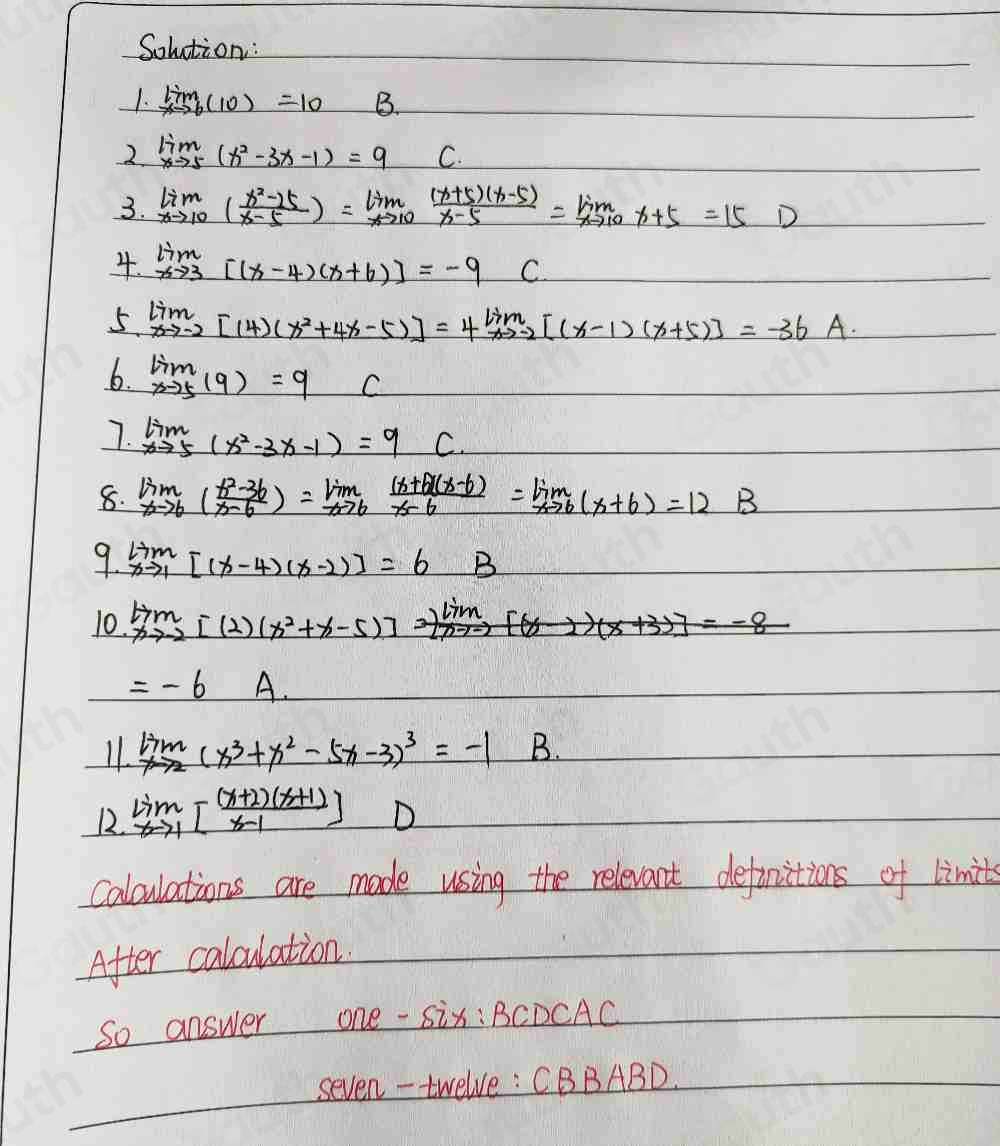 Solution:
1. lim x→6 (10) = 10 B.
2. lim x→5 (x² - 3x - 1) = 9 C.
3. lim x→10 (x²-25 / x-5) = lim x→10 (x+5)(x-5) / x-5 = lim x→10 x+5 = 15 D
4. lim x→3 [(x-4)(x+6)] = -9 C.
5. lim x→-2 [(4)(x²+4x-5)] = 4 lim x→-2 [(x-1)(x+5)] = -36 A.
6. lim x→5 (9) = 9 C
7. lim x→5 (x²-3x-1) = 9 C.
8. lim x→6 (x²-36 / x-6) = lim x→6 (x+6)(x-6) / x-6 = lim x→6 (x+6) = 12 B
9. lim x→1 [(x-4)(x-2)] = 6 B
10. lim x→-2 [(2)(x²+x-5)] = 2 lim x→-2 [(x-2)(x+3)] = -8
= -6 A.
11. lim x→2 (x³+x²-5x-3)³ = -1 B.
12. lim x→1 [(x+2)(x+1) / x-1] D
Calculations are made using the relevant definitions of limits
After calculation.
So answer one-six: BCDCAC
seven-twelve: CBBABD.